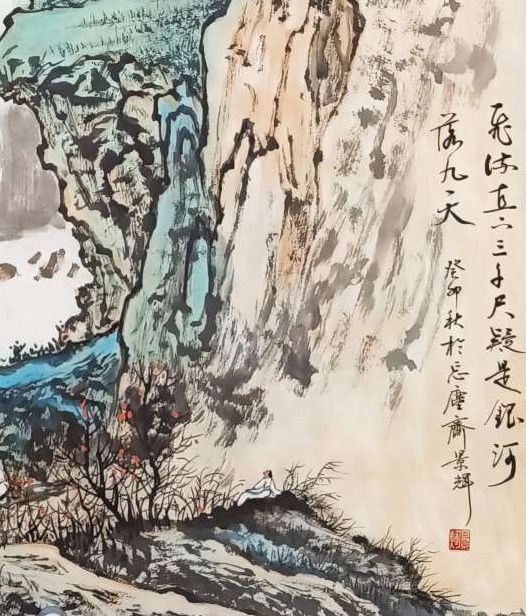 飛流直下三千尺疑是銀河
落九天
癸卯秋於忘塵齋景輝